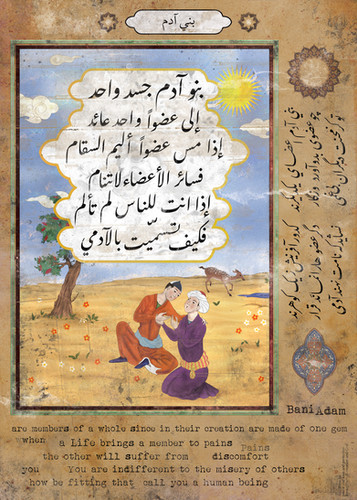 بني آدم
بنو آدم جسد واحد
إلى عضواً واحد عائد
إذا مس عضواً أليم السقام
فسائر الأعضاء لاتنام
إذا انت للناس لم تألم
فكيف تسمّيت بالآدمي
بنی آدم اعضای یکدیگرند
که در آفرینش ز یک گوهرند
چو عضوی بدرد آورد روزگار
دگر عضوها را نماند قرار
تو کز محنت دیگران بی غمی
نشاید که نامت نهند آدمی
Bani Adam
are members of a whole since in their creation are made of one gem
when a Life brings a member to pains Pains
the other will suffer from discomfort
you You are indifferent to the misery of others
how be fitting that call you a human being